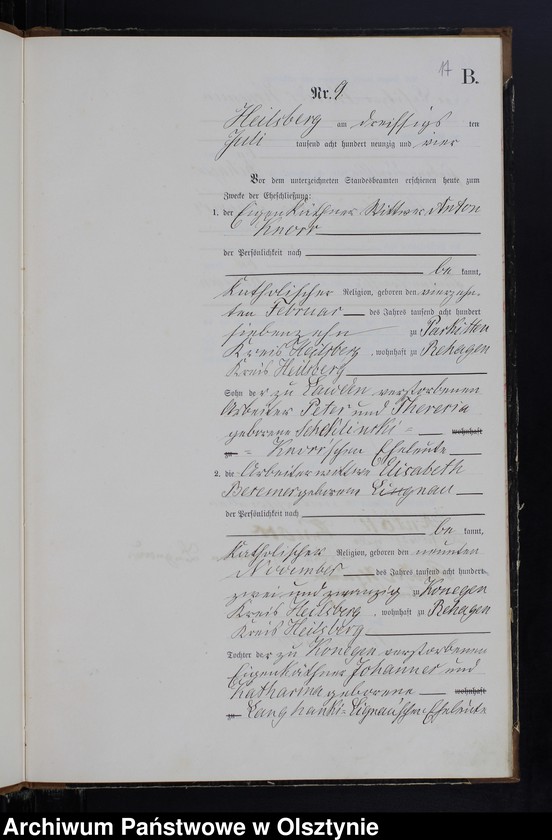 17
B.
Nr. 9
Heilsberg am dreißigs ten
Juli tausend acht hundert neunzig und vier
Vor dem unterzeichneten Standesbeamten erschienen heute zum
Zwecke der Eheschließung:
1. der Eigenkäthner Wittwer Anton
Knorr
der Persönlichkeit nach
be kannt,
katholischer Religion, geboren den vierzehn-
ten Februar des Jahres tausend acht hundert
siebenzehn zu Parkitten
Kreis Heilsberg, wohnhaft zu Rehagen
Kreis Heilsberg
Sohn der zu Lawden verstorbenen
Arbeiter Peter und Theresia
geborene wohnhaft
zu Knorrschen Eheleute
2. die Arbeiterwittwe Elisabeth
geborene Lingnau
der Persönlichkeit nach
be kannt,
katholischer Religion, geboren den neunten
November des Jahres tausend acht hundert
zwei und zwanzig zu Konegen
Kreis Heilsberg, wohnhaft zu Rehagen
Kreis Heilsberg
Tochter der zu Konegen verstorbenen
Eigenkäthner Johannes und
Katharina geborene wohnhaft
zu Langhanki-Lignau'schen Eheleute
Archiwum Państwowe w Olsztynie